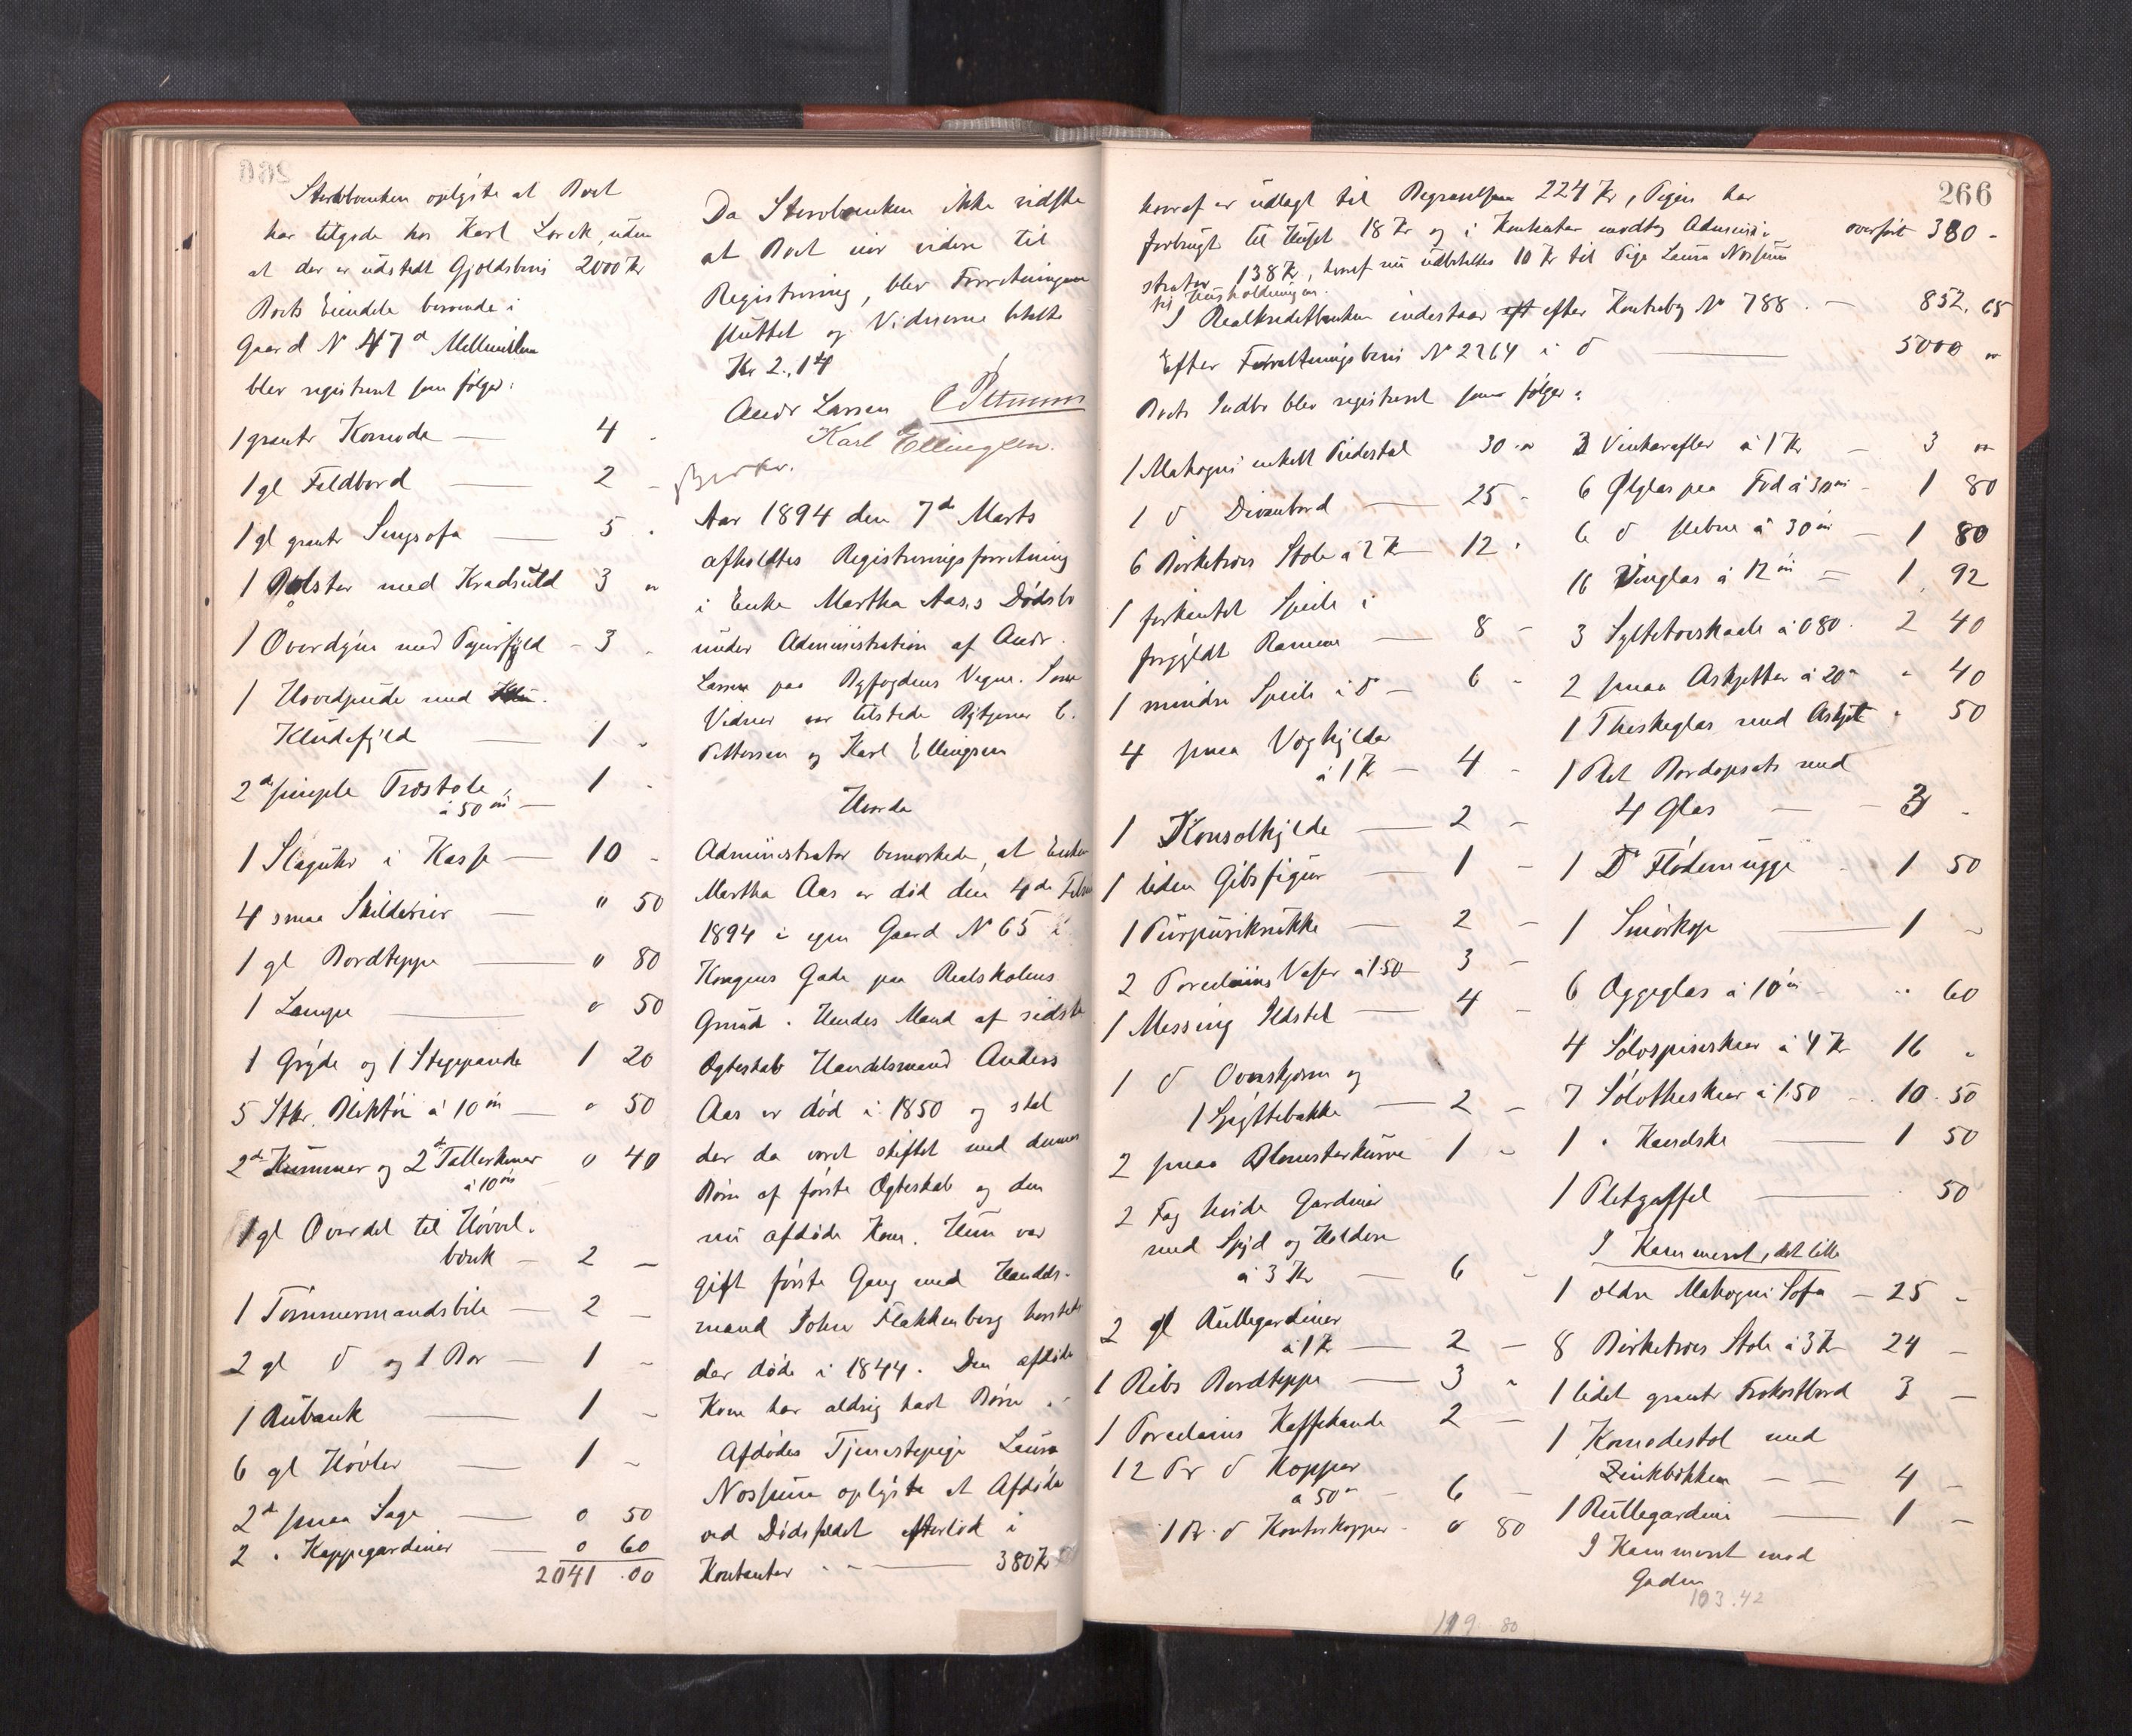 Stervboenken oplyste at Boet
har tilgode hos Karl Lorck, uden
at der er udstedt Gjældsbevis 2000 Kr
Boets Eiendele beroende i
Gaard N 47a Mellemilen
blev registreret som følger:
1 grantr Komode — 4 -
1 gl Foldbord — 2 -
1 gl grantr Sengsofa — 5 -
1 Bolster med Kradsuld 3 "
1 Overdyne med Fyld - 3 -
1 Hovedpude med
Kludefyld — 1 -
2de simple Træstole, 1 -
à 50 øre —
1 Slaguhr i Kasse — 10 -
4 smaa Skilderier — " 50
1 gl Bordteppe — " 80
1 Lampe — " 50
1 Gryde og 1 Stegepande 1 20
5 Stkr. Bliktøi à 10 øre — " 50
2de Kummer og 2de Tallerkener " 40
à 10 øre
1 gl Overdel til Høvel-
bænk — 2 -
1 Tømmermandsbile — 2 -
2 gl do og 1 Bor — 1 -
1 Rubank — 1 -
6 gl Høvler — 1 -
2de smaa Sage — " 50
2 " Kappegardiner — " 60
2041.00
Da Stervboenken ikke vidste
at Boet eier videre til
Registrering, blev Forretningen
sluttet og Vidnerne betalte
Kr 2.14
Andr Larsen C Pettersen
Karl Ellingsen.
Aar 1894 den 7de Marts
afholdtes Registreringsforretning
i Enke Martha Aas's Dødsbo
under Administration af Andr.
Larsen paa Byfogdens Vegne. Som
Vidner var tilstede Bytjener C.
Pettersen og Karl Ellingsen
Hvorda
Administrator bemærkede, at Enken
Martha Aas er død den 4de Febr
1894 i egen Gaard N 65 i
Kongens Gade paa Realskolens
Grund. Hendes Mand af sidste
Ægteskab Handelsmand Anders
Aas er død i 1850 og skal
der da været skiftet med dennes
Børn af første Ægteskab og den
nu afdøde Kone. Hun var
gift første Gang med Handels-
mand John Flakkenberg hersteds
der døde i 1844. Den afdøde
Kone har aldrig havt Børn.
Afdødes Tjenestepige Laura
Nossum oplyste at Afdøde
ved Dødsfaldet efterlod i
Kontanter — 380 Kr
266
hvoraf er udlagt til Begravelsen 224 Kr, Pigen har
forbrugt til Huset 18 Kr og i Kontanter modtog Admini- overført 380 -
strator 138 Kr, hvoraf nu udbetaltes 10 Kr til Pige Laura Nossum
til Husholdningen.
I Realkreditbanken indestaar efter Kontrabog N 788. — 852.65
Efter Forvaltningsbevis N 2264 i do — 5000 "
Boets Indbo blev registreret som følger:
1 Mahogni enkelt Pidestal 30 "
1 do Divanbord — 25 -
6 Birketræs Stole à 2 Kr — 12 -
1 forkantet Speile i
forgyldt Ramme — 8 -
1 mindre Speile i do — 6 -
4 smaa Væghylder
à 1 Kr — 4 -
1 Konsolhylde — 2 -
1 liden Gibsfigur — 1 -
1 Purpurikrukke — 2 -
2 Porcelæins Vaser à 1.50 3 -
1 Messing Ildstel — 4 -
1 do Ovnskjerm og
1 Spyttebakke — 2 -
2 smaa Blomsterkurve 1 -
2 Fag hvide Gardiner
med Spyd og Holdere
à 3 Kr — 6 -
2 gl Rullegardiner
à 1 Kr — 2 -
1 Ribs Bordteppe — 3 "
1 Porcelæins Kaffekande 2 -
12 Pr do Kopper
à 50 " — 6 -
1 Pr. do Kontorkopper - " 80
119 80
3 Vinkarafler à 1 Kr — 3 "
6 Ølglas paa Fod à 30 øre - 1 80
6 do slebne à 30 øre — 1 80
16 Vinglas à 12 øre — 1.92
3 Syltetøiskaale à 0.80. 2 40
2 smaa Askjetter à 20 " " 40
1 Theskeglas med Askjet " 50
1 Plet Bordopsats med
4 Glas — 3 -
1 Do Flødemugge - 1 50
1 Smørkop — 1 -
6 Æggeglas à 10 øre - " 60
4 Sølvspiseskeer à 4 Kr 16 "
7 Sølvtheskeer à 1.50 - 10.50
1 " Kandske — 1 50
1 Pletgaffel — 50
I Kammeret, det lille
1 ældre Mahogni Sofa — 25 -
8 Birketræs Stole à 3 Kr 24 -
1 lidet grantr Frokostbord 3 -
1 Komodestol med
Zinkbækken — 4 -
1 Rullegardin — 1 -
I Kammeret mod
Gaden
103.42